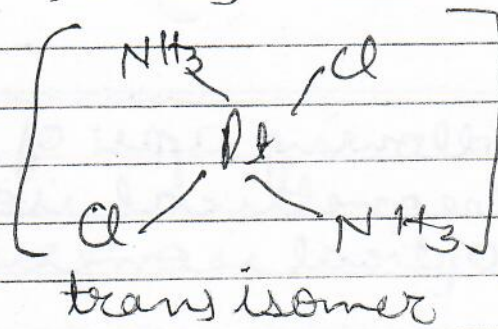 NH3 Cl
Pt
Cl NH3
trans isomer